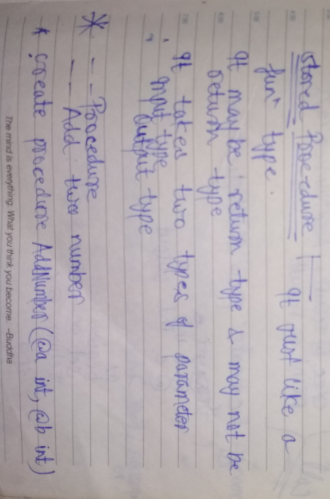 Stored Procedure :- It just like a
funⁿ type.
It may be return type & may not be
return type
It takes two types of parameter
" Input type
" Output type
* -- Procedure
-- Add two number
* create procedure AddNumber (@a int, @b int)
The mind is everything. What you think you become. -Buddha